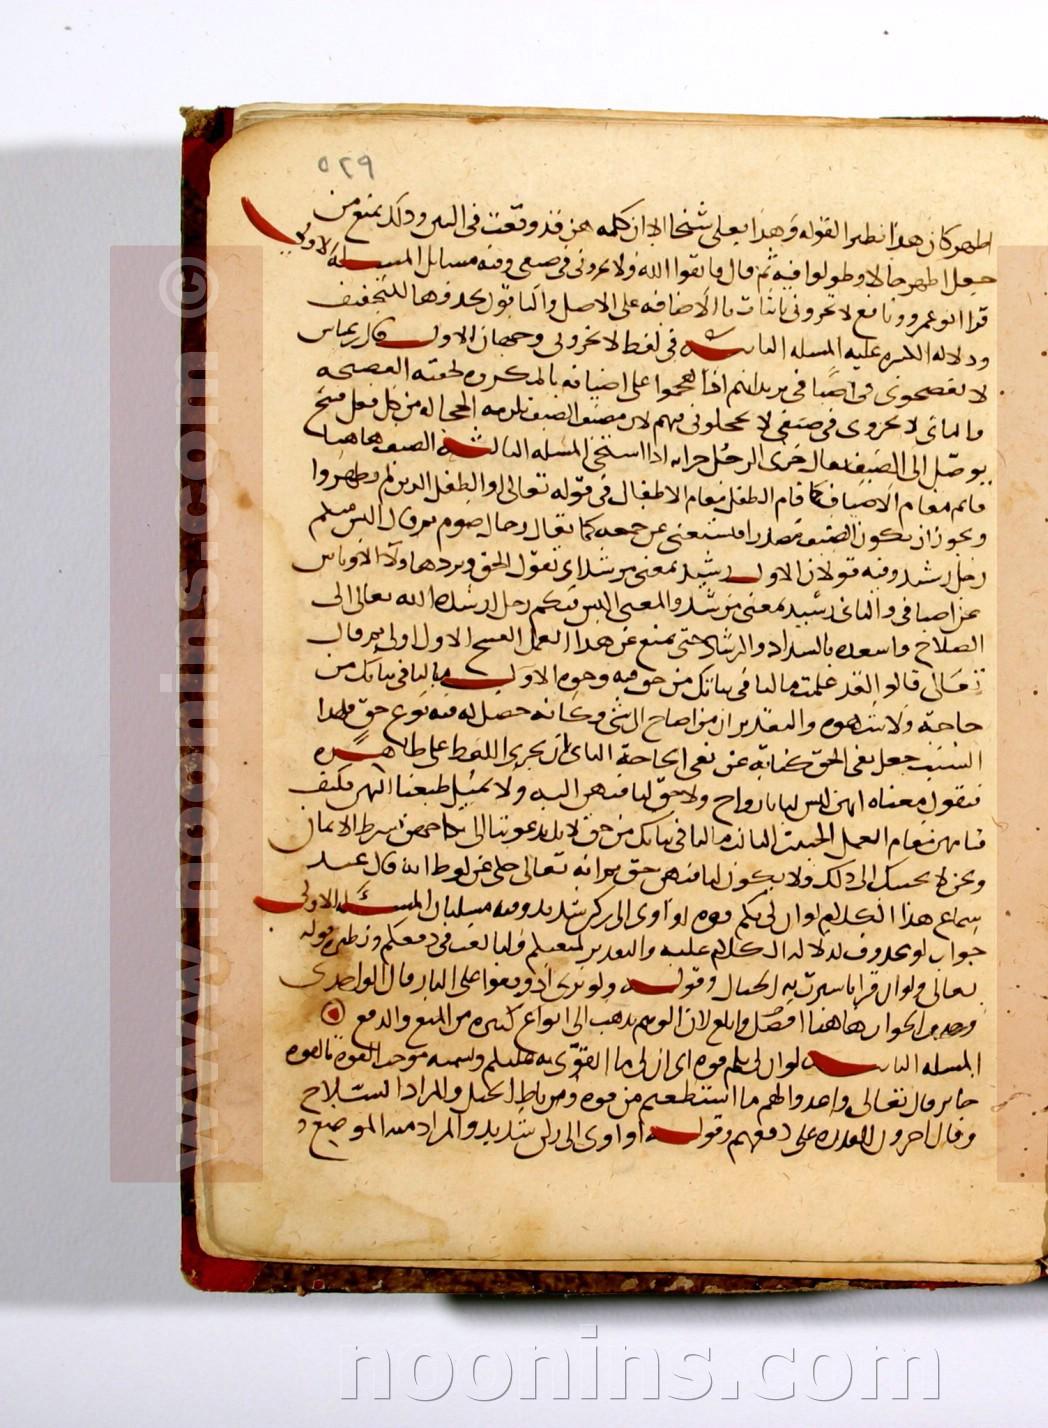 ٥٢٩
اطهر كان هذا نظير القوله وهذا بعلى شيخا الا ان كلمه هن قد وقعت فى البين وذلك يمنع من
جعل اطهر حالا وطولوا فيه ثم قال فاتقوا الله ولا تخزونى فى ضيفى وفيه مسائل المسله الاولى
قرا ابو عمرو ونافع لا تخزونى باثبات يا الاضافه على الاصل والباقون بحذفها للتخفيف
ودلاله الكسره عليه المسله الثانيه فى لفظ لا تخزونى وجهان الاول قال ابن عباس
لا تفضحونى فى اضيافى يريد انهم اذا هجموا على اضيافه بالمكروه لحقته الفضيحه
والثانى لا تخزونى فى ضيفى لا تخجلونى فيهم لان مضيف الضيف يلزمه الخجاله من كل فعل قبيح
يوصل الى الضيف يقال خزى الرجل خزايه اذا استحيى المسله الثالثه الضيف هاهنا
قايم مقام الاضياف كما قام الطفل مقام الاطفال فى قوله تعالى او الطفل الذين لم يظهروا
ويجوز ان يكون الضيف مصدرا فيستغنى عن جمعه كما يقال رجال صوم ثم قال اليس منكم
رجل رشيد وفيه قولان الاول رشيد بمعنى مرشد اى يقول الحق ويرد هاولاء الاوباش
عن اضيافى والثانى رشيد بمعنى مرشد والمعنى اليس فيكم رجل ارشده الله تعالى الى
الصلاح واسعده بالسداد والرشاد حتى يمنع عن هذا العمل القبيح الاول اولى ثم قال
تعالى قالوا لقد علمت ما لنا فى بناتك من حق فيه وجوه الاول ما لنا فى بناتك من
حاجة ولا شهوه والتقدير ان من احتاج الى شى فكانه حصل له فيه نوع حق فلهذا
السبب جعل نفى الحق كناية عن نفى الحاجة الثانى ان يجرى اللفظ على ظاهره
فنقول معناه انهن ليس لنا بازواج ولا حق لنا فيهن البته ولا يميل طبعنا اليهن فكيف
قيامهن مقام العمل الخبيث الثالث ما لنا فى بناتك من حق لانك دعوتنا الى نكاحهن بشرط الايمان
ونحن لا نجيبك الى ذلك فلا يكون لنا فيهن حق ثم انه تعالى حكى عن لوط انه قال عند
سماع هذا الكلام لو ان لى بكم قوه او آوى الى ركن شديد وفيه مسلتان المسئله الاولى
جواب لو محذوف لدلاله الكلام عليه والتقدير لمنعتكم ولبالغت فى دفعكم ونظيره قوله
تعالى ولو ان قرانا سيرت به الجبال وقوله ولو ترى اذ وقفوا على النار قال الواحدى
وحذف الجواب هاهنا افضل وابلغ لان الوهم يذهب الى انواع كثيره من المنع والدفع
المسله الثانيه لو ان لى بكم قوه اى لو ان لى ما اتقوى به عليكم وتسميه موجب القوه بالقوه
جايز قال تعالى واعدوا لهم ما استطعتم من قوه ومن رباط الخيل والمراد السلاح
وقال اخرون القدره على دفعهم وقوله او اوى الى ركن شديد والمراد منه الموضع
www.noonins.com ©
noonins.com